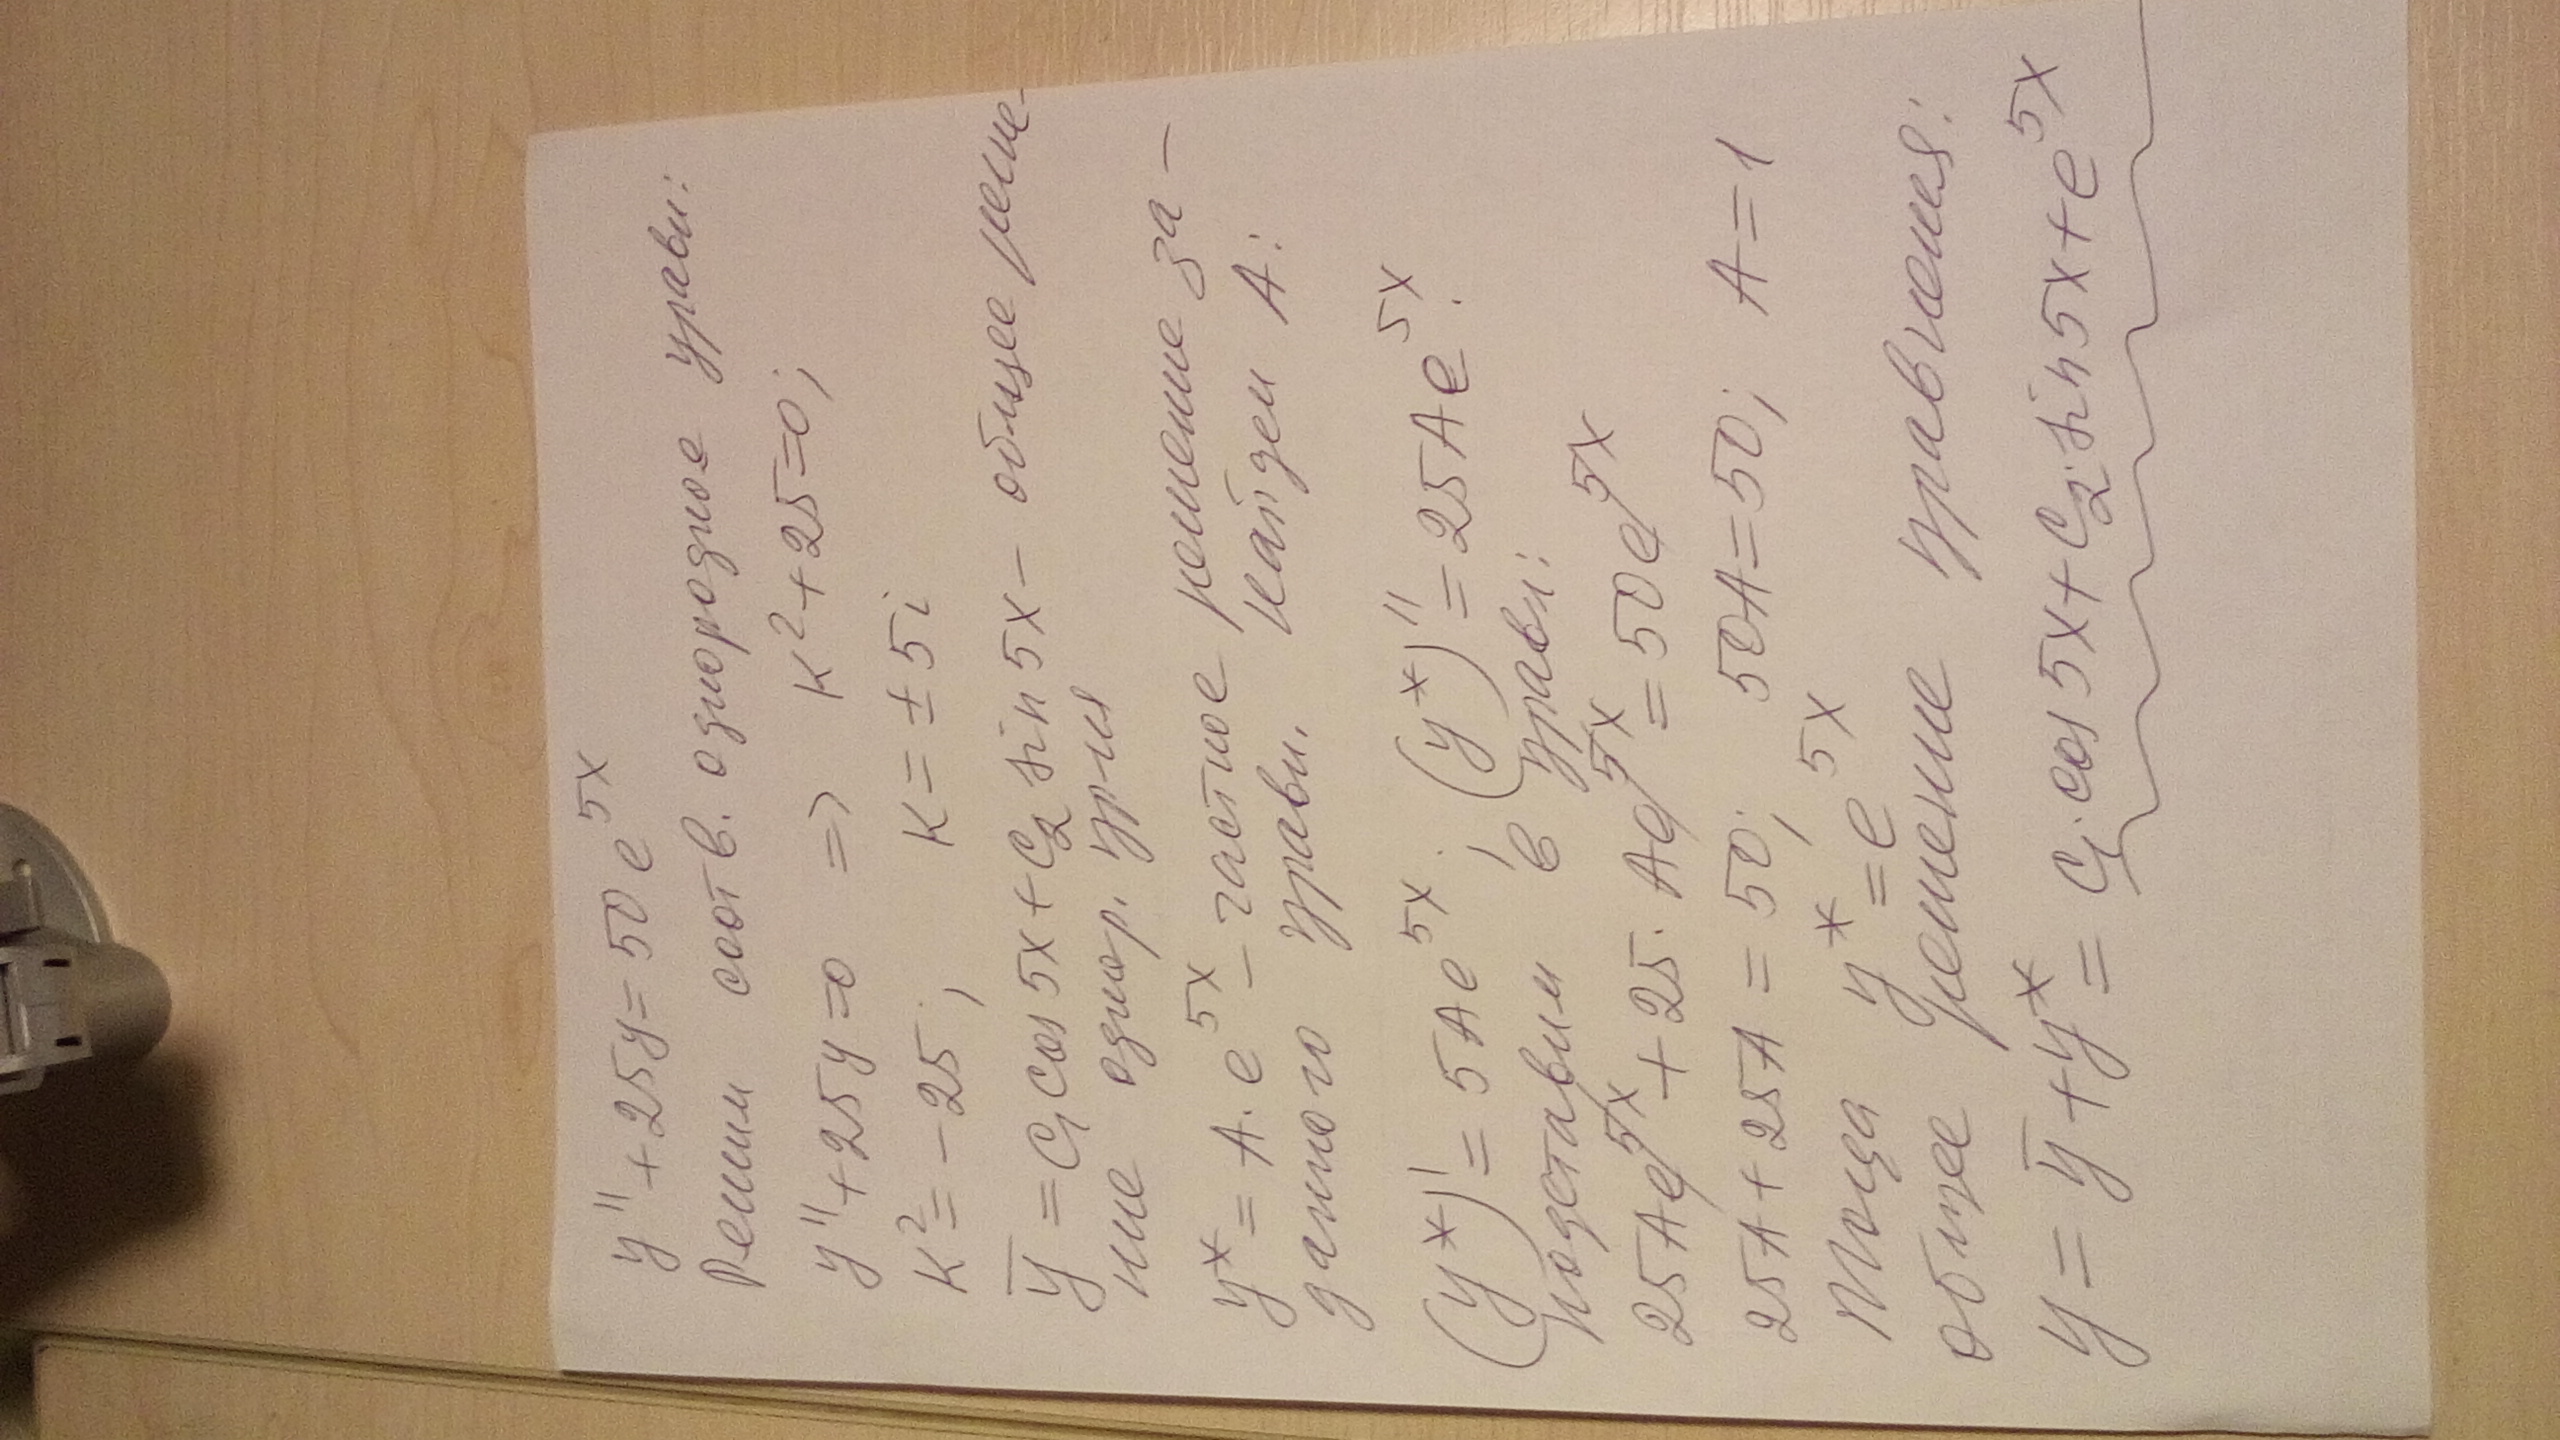 y'' + 25y = 50 e^5x
Решим соотв. однородное уравн:
y'' + 25y = 0 => K² + 25 = 0;
K² = -25; K = ± 5i
ȳ = C₁ cos 5x + C₂ sin 5x - общее реше-
ние однор. ур-ия
y* = A · e^5x - частное решение за-
данного уравн. Найдем A:
(y*)' = 5A e^5x; (y*)'' = 25A e^5x.
Подставим в уравн:
25Ae^5x + 25 · Ae^5x = 50 e^5x
25A + 25A = 50; 50A = 50; A = 1
Тогда y* = e^5x
Общее решение уравнения:
y = ȳ + y* = C₁ · cos 5x + C₂ · sin 5x + e^5x